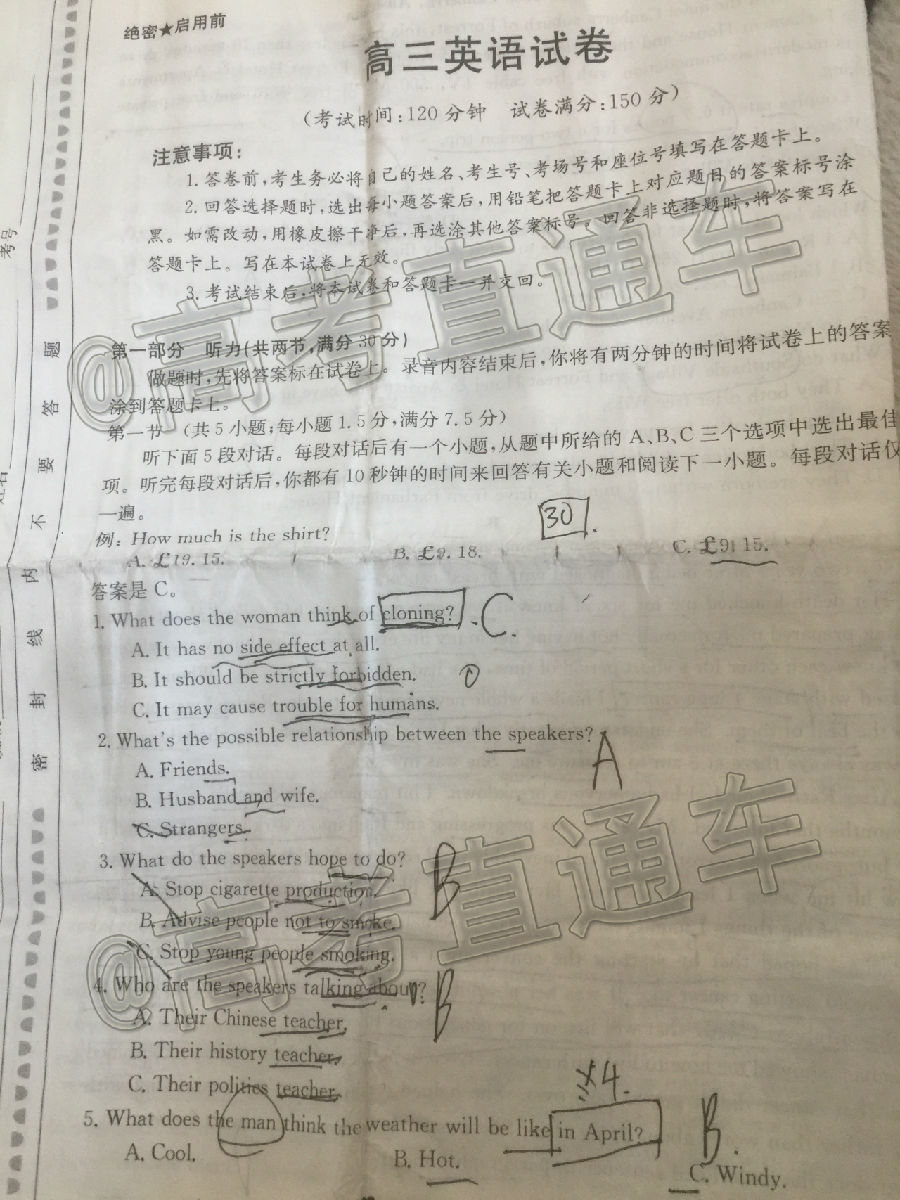 绝密★启用前
高三英语试卷
(考试时间:120分钟 试卷满分:150分)
注意事项:
1.答卷前,考生务必将自己的姓名、考生号、考场号和座位号填写在答题卡上。
2.回答选择题时,选出每小题答案后,用铅笔把答题卡上对应题目的答案标号涂
黑。如需改动,用橡皮擦干净后,再选涂其他答案标号。回答非选择题时,将答案写在
答题卡上。写在本试卷上无效。
3.考试结束后,将本试卷和答题卡一并交回。
@高考直通车
第一部分 听力(共两节,满分30分)
做题时,先将答案标在试卷上。录音内容结束后,你将有两分钟的时间将试卷上的答案
涂到答题卡上。
第一节 (共5小题;每小题1.5分,满分7.5分)
听下面5段对话。每段对话后有一个小题,从题中所给的A、B、C三个选项中选出最佳
项。听完每段对话后,你都有10秒钟的时间来回答有关小题和阅读下一小题。每段对话仅
一遍。
30
例: How much is the shirt?
A. £19.15. B. £9.18. C. £9.15.
答案是C。
1. What does the woman think of cloning? C.
A. It has no side effect at all.
B. It should be strictly forbidden.
C. It may cause trouble for humans.
2. What's the possible relationship between the speakers? A
A. Friends.
B. Husband and wife.
C. Strangers.
3. What do the speakers hope to do? B
A. Stop cigarette production.
B. Advise people not to smoke.
C. Stop young people smoking.
@高考直通车
4. Who are the speakers talking about? B
A. Their Chinese teacher.
B. Their history teacher.
C. Their politics teacher.
4.
5. What does the man think the weather will be like in April? B.
A. Cool. B. Hot. C. Windy.
考号
姓名
密 封 线 内 不 要 答 题